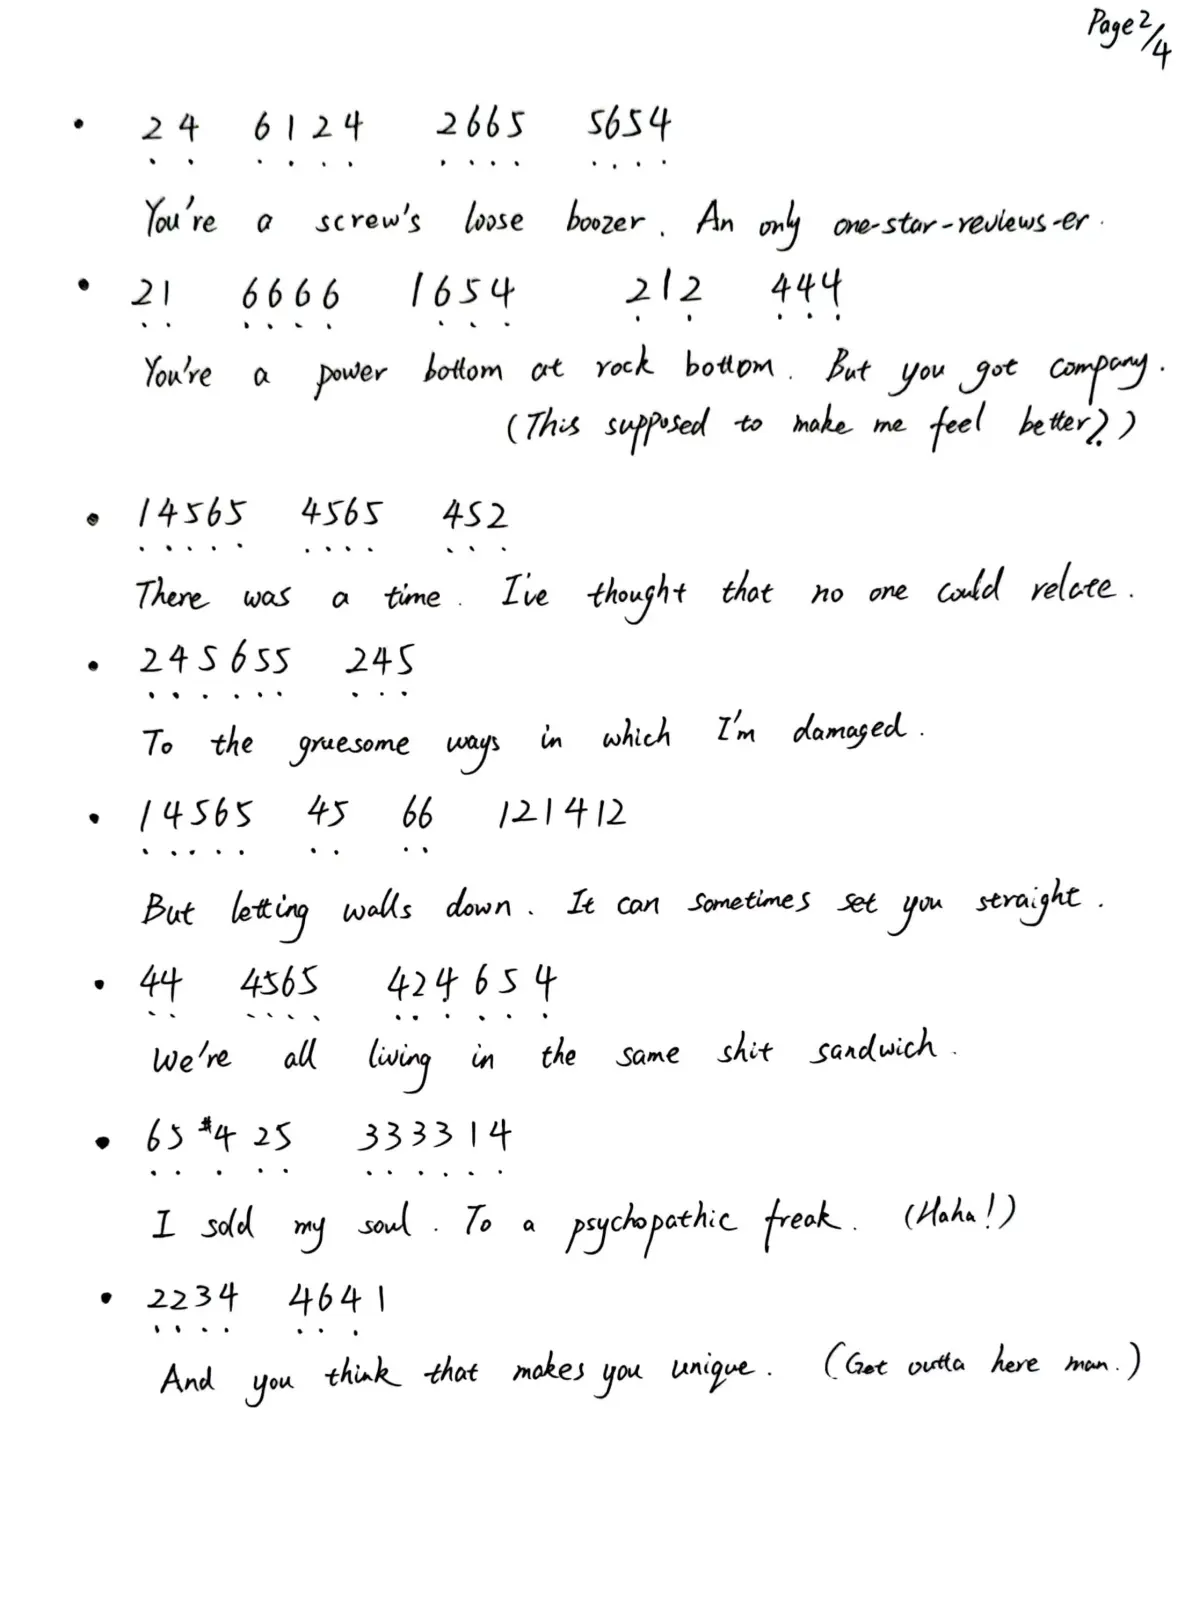 Page 2/4
• 24 6124 2665 5654
You're a screw's loose boozer. An only one-star-reviews-er.
• 21 6666 1654 212 444
You're a power bottom at rock bottom. But you got company.
(This supposed to make me feel better?)
• 14565 4565 452
There was a time. I've thought that no one could relate.
• 245655 245
To the gruesome ways in which I'm damaged.
• 14565 45 66 121412
But letting walls down. It can sometimes set you straight.
• 44 4565 424654
We're all living in the same shit sandwich.
• 65#425 333314
I sold my soul. To a psychopathic freak. (Haha!)
• 2234 4641
And you think that makes you unique. (Get outta here man.)